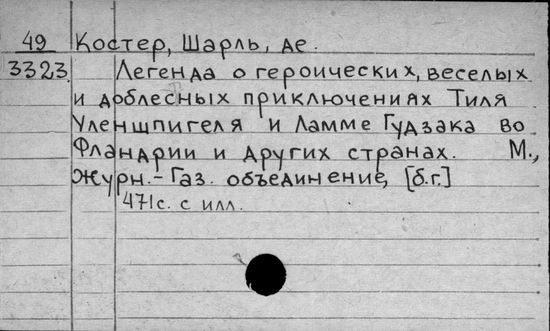 49 Костер, Шарль, де.
3323 Легенда о героических, веселых
и доблесных приключениях Тиля
Уленшпигеля и Ламме Гудзака во
Фландрии и других странах. М.,
Журн.-Газ. объединение, [б.г.]
471с. с илл.